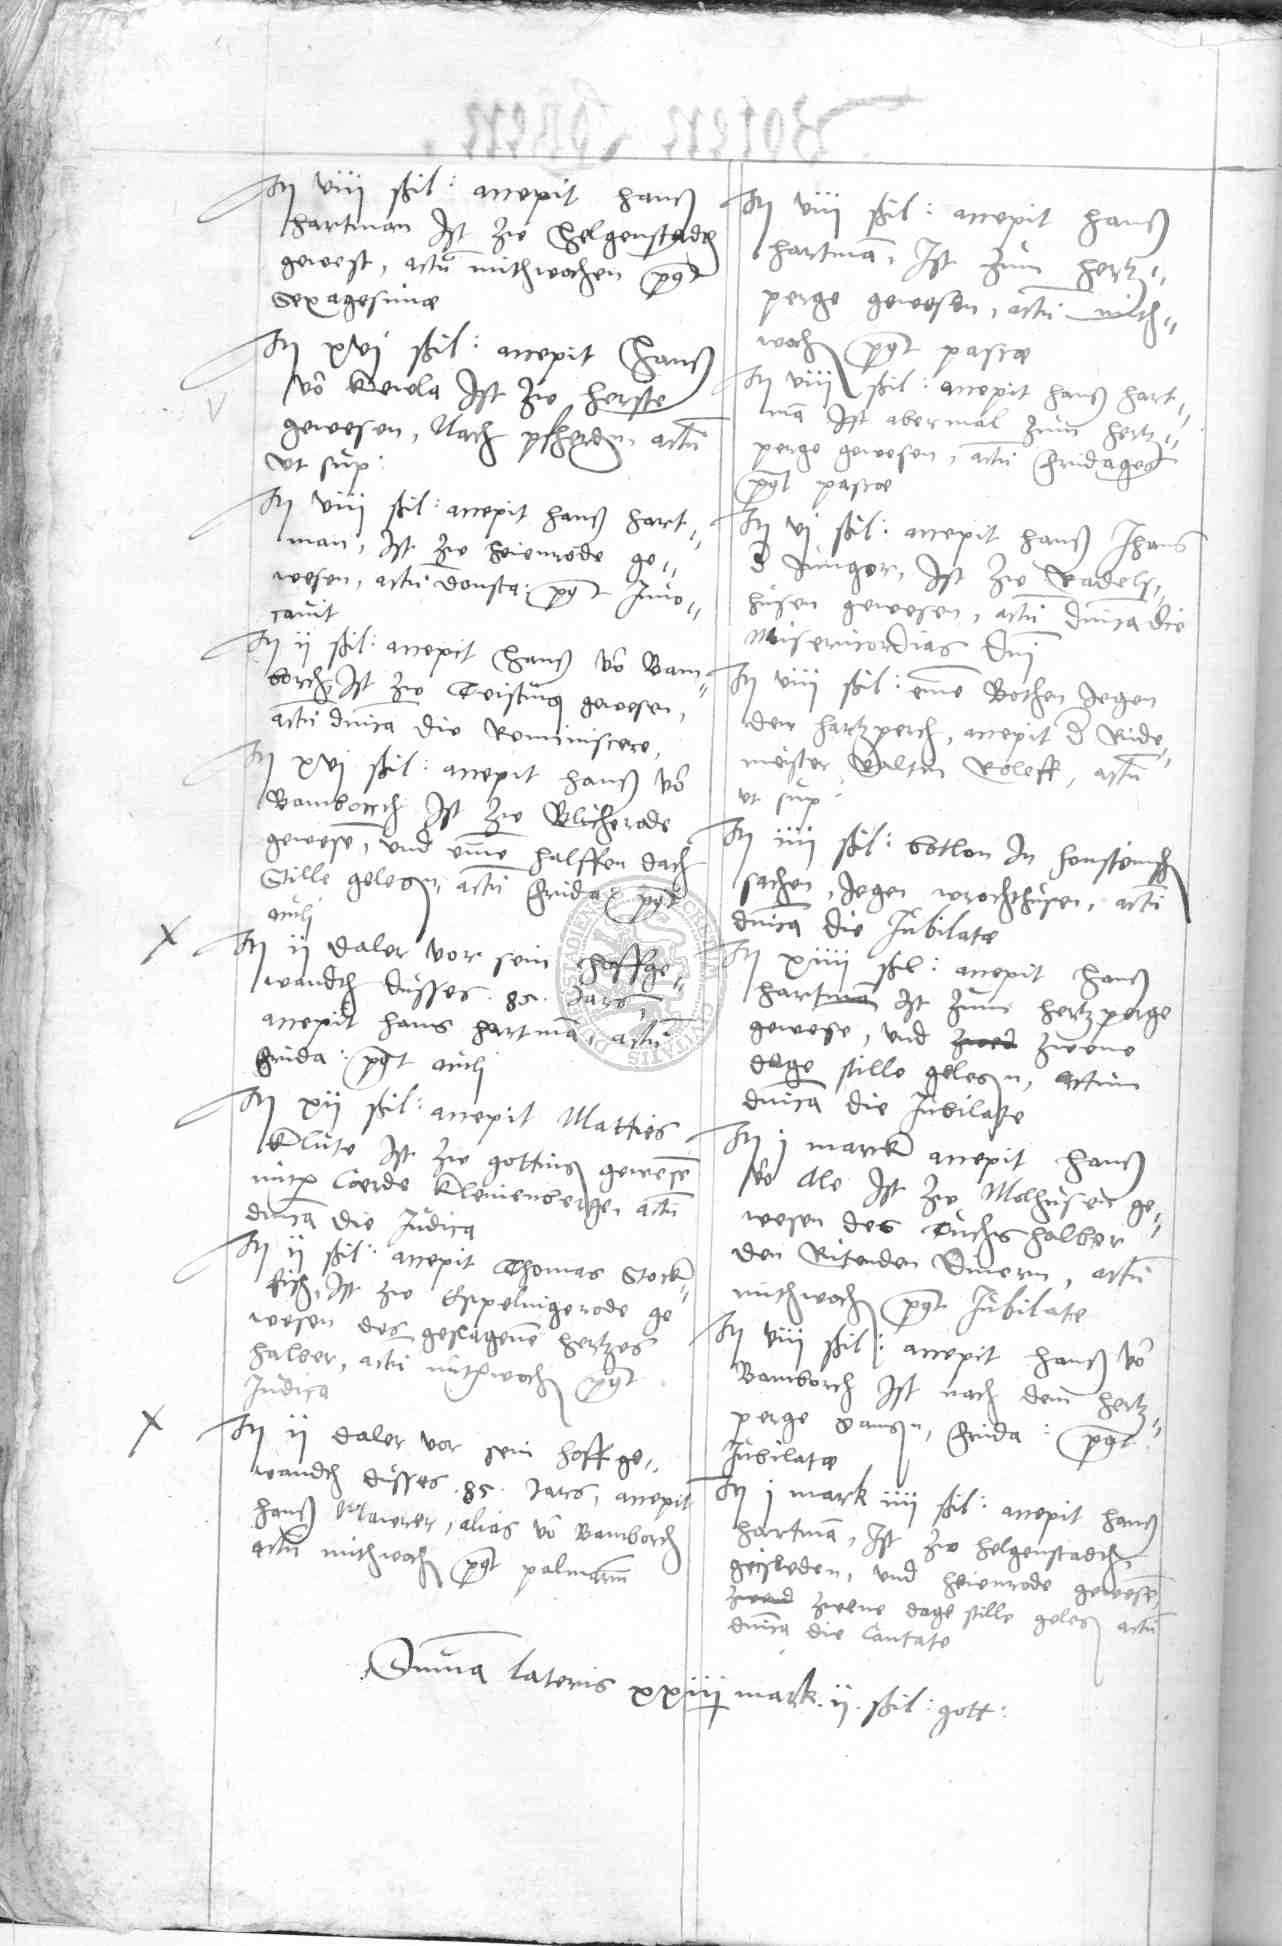 It viii ßil: accepit Hanß
Hartman Ist zw Helgenstadt
gewest, actu mithwochen post
Sexagesimae
It xvi ßil: accepit Hanß
vo Ist zw Herste
gewesen, Nach pherden actu
Ut sup:
It viii ßil: accepit Hanß Hart-
man, Ist zw Heienrode ge-
wesen, actu Donsta: post Invo-
cavit
It ii ßil: accepit Hanß vo Bam-
borch, Ist zw Teistung gewesen,
actu dnica die Reminiscere,
It xvi ßil: accepit Hanß vo
Bamborch Ist zw Blicherode
gewese, und eine halffen dach
Stille gelegen, actu Frida: post
oculj
X It ii daler vor sein Hoffge-
wandth düsses .85. Jars,
accepit Hans Hartma, actu
Frida: post oculj
It xii ßil: accepit Matties
Klüte Ist zw Gotting gewese
mit Coerde actu
dnica die Judica
It ii ßil: accepit Thomas Stock-
fisch, Ist zw Espelingerode ge
wesen des geslagene Hertzes
halber, actu mitwoch post
Judica
X It ii daler vor sein Hoff ge-
wandth düsses .85. Jars, accepit
Hanß alias vo Bamborch
actu mithwoch post palmarum
It viii ßil: accepit Hanß
Hartma, Ist zum Hertz-
perge gewesen, actu mith-
woch post pascae
It viii ßil: accepit Hanß Hart-
ma Ist abermal zum Hertz-
perge gewesen, actu Fridages
post pascae
It vi ßil: accepit Hanß Jhans
d Junger, Ist zw Radelfs-
husen gewesen, actu dnica die
Misericordias Dnj
It viii ßil: eine Bothen Jegen
den Hartzperch, accepit d Ride-
meister Valtin Roleff, actu
ut sup:
It iiii ßil: botlon In honsteinsch
sachen, Jegen actu
dnica die Jubilatae
It xiiii ßil: accepit Hanß
Hartman Ist zum Hertzperge
gewese, und zwene
dage stille gelegen, actum
dnica die Jubilate
It j marck accepit Hanß
vo Ist zw Molhusen ge-
wesen des tuchs halber
den Ritenden Dinern, actu
mithwoch post Jubilate
It viii ßil: accepit Hanß vo
Bamborch Ist nach dem Hertz-
perge gangen, Frida: post
Jubilatae
It j mark iiii ßil: accepit Hanß
Hartma, Ist zw Helgenstadth,
Geisleden, und Heienrode gewese,
zwene dage stille geleg actu
dnica die Cantate
Suma lateris xxiii mark .ii. ßil: gott: